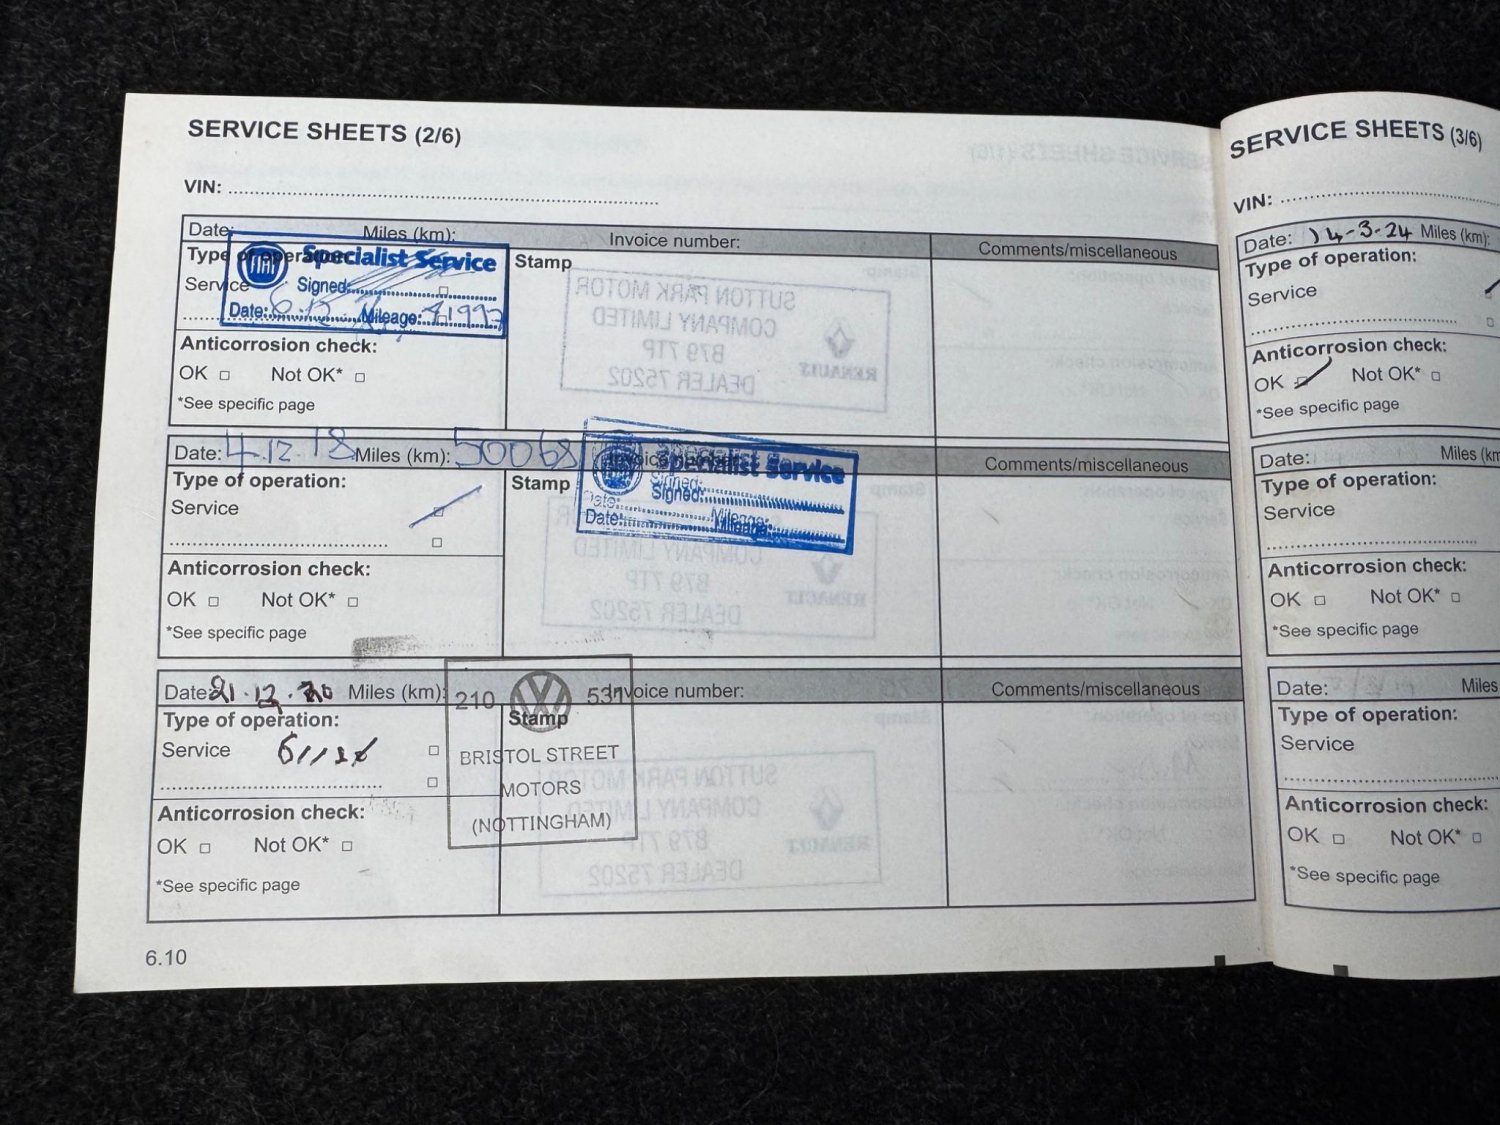 SERVICE SHEETS (2/6)
VIN:
Date: Miles (km): Invoice number: Comments/miscellaneous
Type of operation:
Service
Stamp
FIAT Specialist Service
Signed:
Date: 6.12 Mileage:
Anticorrosion check:
OK Not OK*
*See specific page
SUTTON PARK MOTOR
COMPANY LIMITED
B79 7TP
DEALER 75202
RENAULT
Date: 4.12.18 Miles (km): 50068 Invoice number: Comments/miscellaneous
Type of operation:
Service
Stamp
Specialist Service
Signed:
Date: Mileage:
Anticorrosion check:
OK Not OK*
*See specific page
COMPANY LIMITED
B79 7TP
DEALER 75202
RENAULT
Date: 21.12.20 Miles (km): Invoice number: Comments/miscellaneous
Type of operation:
Service
Stamp
210 VW 531
BRISTOL STREET
MOTORS
(NOTTINGHAM)
Anticorrosion check:
OK Not OK*
*See specific page
SUTTON PARK MOTOR
COMPANY LIMITED
B79 7TP
DEALER 75202
RENAULT
6.10
SERVICE SHEETS (3/6)
VIN:
Date: 14-3-24 Miles (km):
Type of operation:
Service
Anticorrosion check:
OK Not OK*
*See specific page
Date: Miles (km
Type of operation:
Service
Anticorrosion check:
OK Not OK*
*See specific page
Date: Miles
Type of operation:
Service
Anticorrosion check:
OK Not OK*
*See specific page